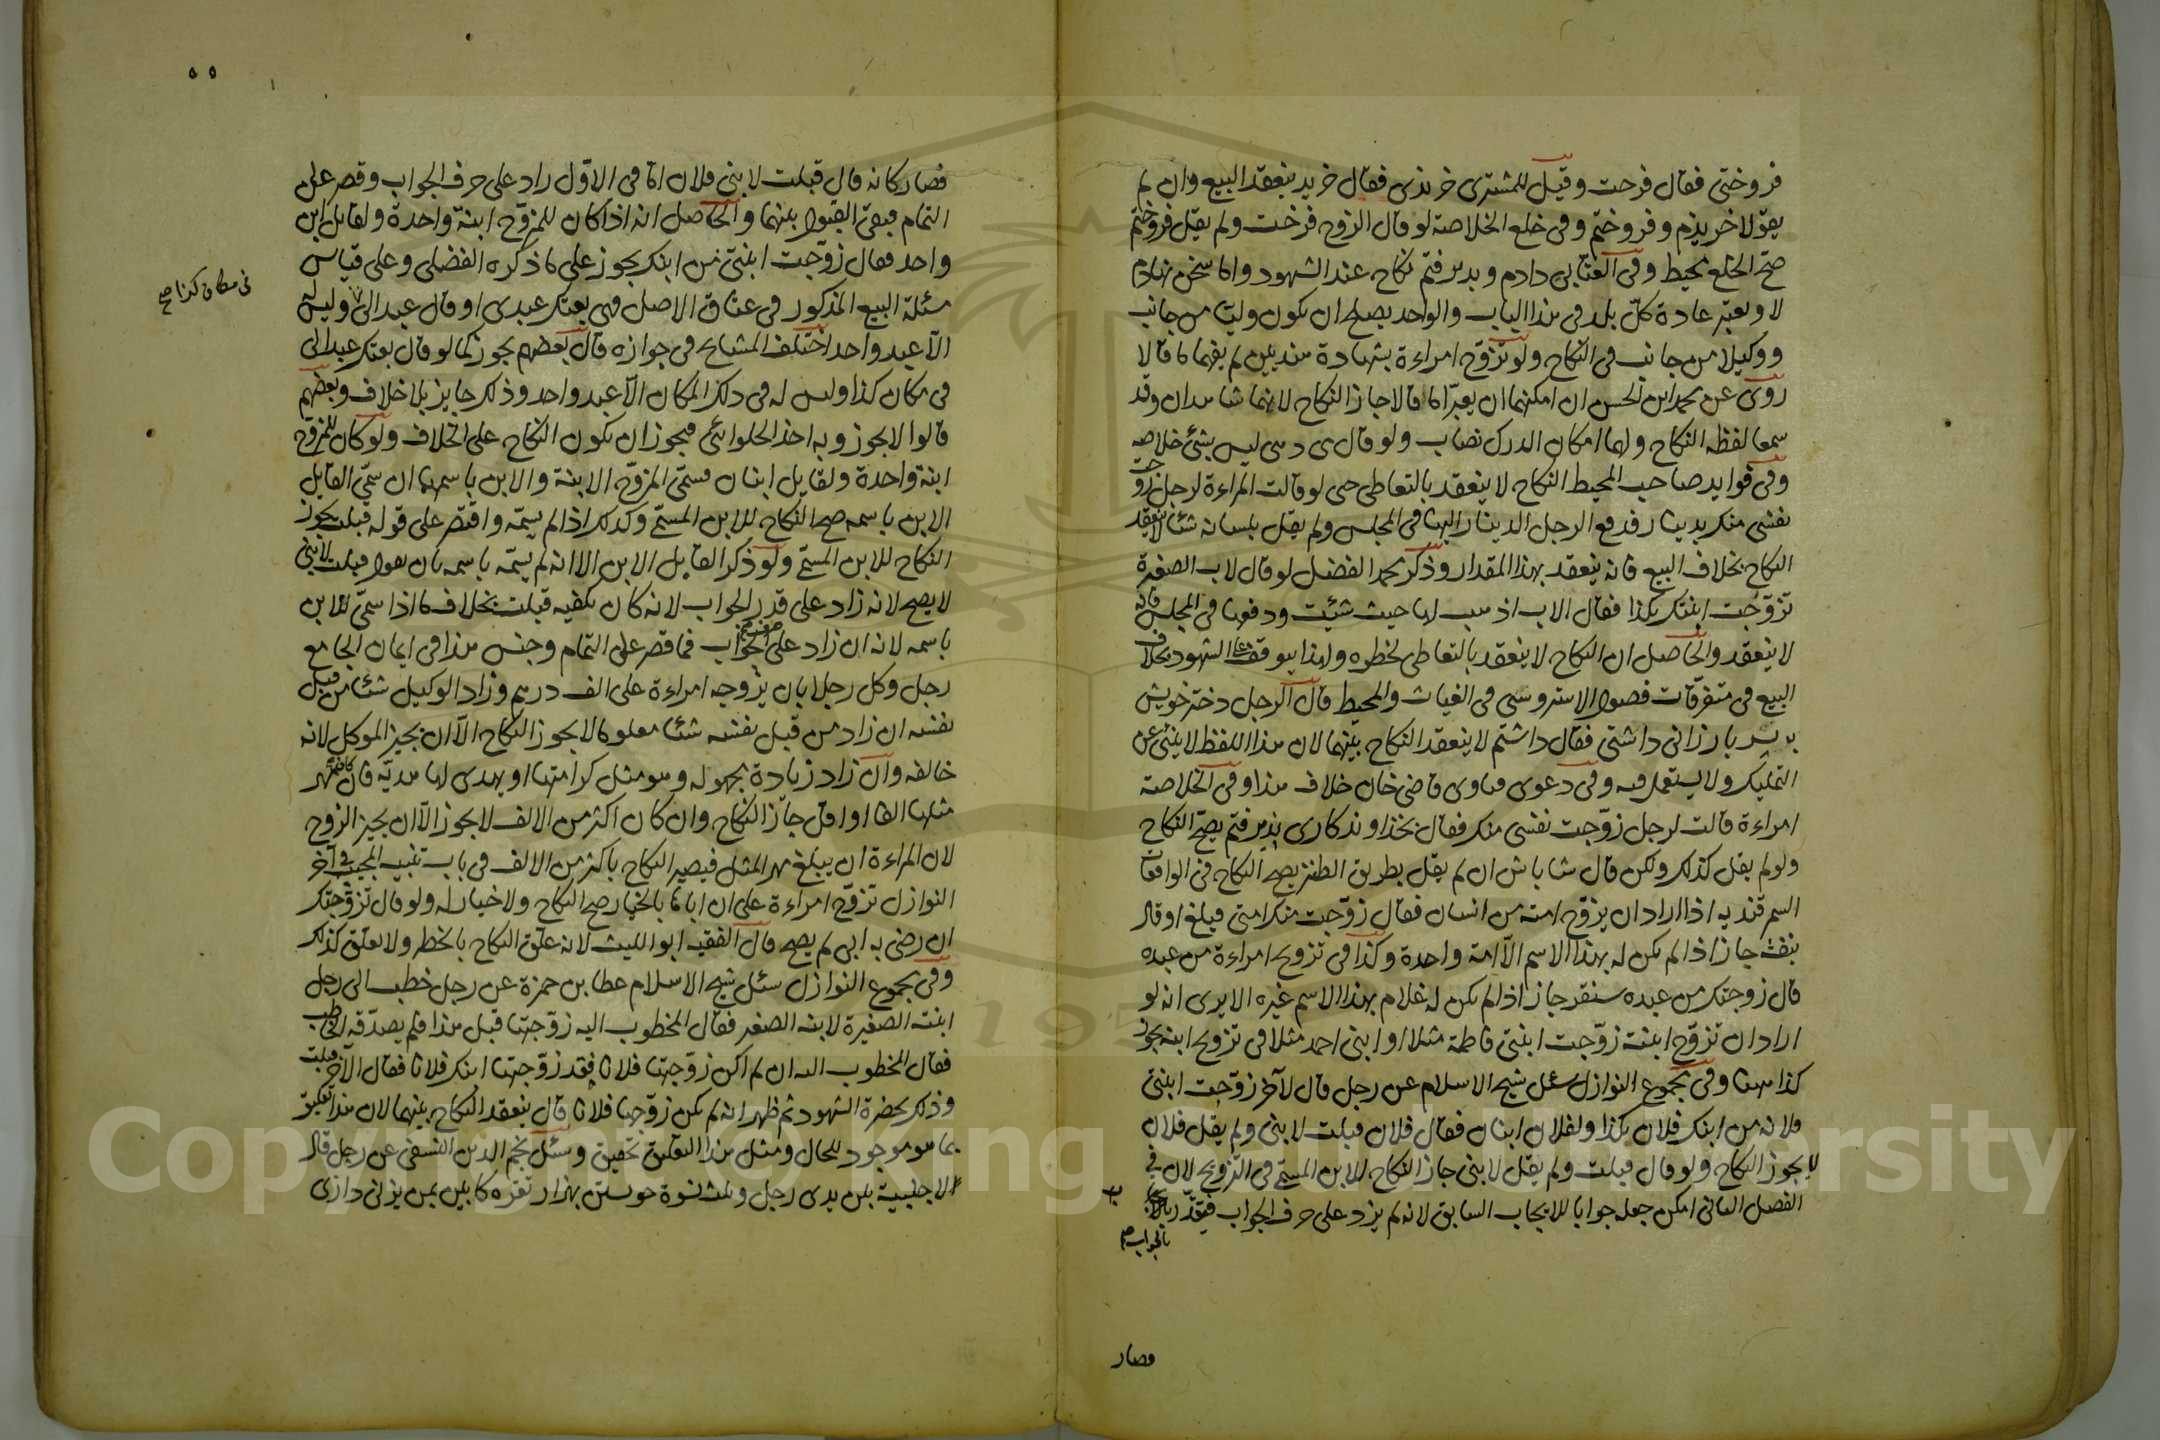 فروختى فقال فرحت وقيل للمشترى خريدى فقال خريد ينعقد البيع وان لم
يقولا خريدم وفروختم وفى خلع الخلاصة لو قال الزوج فرخت ولم يقل فروختم
صح الخلع محيط وفى العتابى دادم وبدير فتم نكاح عند الشهود واما سخن نهادم
لا ويعتبر عادة كل بلد فى هذا الباب والواحد يصلح ان يكون وليا من جانب
ووكيلا من جانب فى النكاح ولو تزوج امراءة بشهادة هنديين لم يفهما ما قالا
روى عن محمد ابن الحسن ان امكنهما ان يعبرا ما قالا جاز النكاح لانهما شاهدان وقد
سمعا لفظه النكاح ولهما امكان الدرك نصاب ولو قال مى دهى ليس بشئ خلاصه
وفى فوايد صاحب المحيط النكاح لا ينعقد بالتعاطى حى لو قالت المراءة لرجل زوجت
نفسى منك بدينار فدفع الرجل الدينار اليها فى المجلس ولم يقل بلسانه شئا لا ينعقد
النكاح بخلاف البيع فانه ينعقد بهذا المقدار وذكر محمد الفضل لو قال لاب الصغيرة
تزوجت ابنتك بكذا فقال الاب اذهب بها حيث شئت ودفعها فى المجلس فانه
لا ينعقد والحاصل ان النكاح لا ينعقد بالتعاطى لخطره ولهذا يتوقف على الشهود بخلاف
البيع فى متفرقات فصول الاستروسنى فى الغياث والمحيط قال الرجل دختر خويش
به پسر بارزانى داشتى فقال داشتم لا ينعقد النكاح بينهما لان هذا اللفظ لا ينبئ عن
التمليك ولا يستعمل فيه وفى دعوى فتاوى قاضى خان خلاف هذا وفى الخلاصة
امراءة قالت لرجل زوجت نفسى منك فقال بخذاوندكارى پذير فتم يصح النكاح
ولو لم يقل كذلك ولكن قال شاباش ان لم يقل بطريق الطنز يصح النكاح فى الواقعات
السمرقنديه اذا اراد ان يزوج امته من انسان فقال زوجت منك امتى فبلغ او قال
بنفشه جاز اذا لم يكن له بهذا الاسم الا امة واحدة وكذا فى تزويج امراءة من عبده
قال زوجتك من عبده سنقر جاز اذا لم يكن له غلام بهذا الاسم غيره الا يرى انه لو
اراد ان تزوج ابنته زوجت ابنتى فاطمة مثلا او ابنى احمد مثلا فى تزويج ابنه يجوز
كذا ههنا وفى مجموع النوازل سئل شيخ الاسلام عن رجل قال لآخر زوجت ابنتى
فلانه من ابنك فلان بكذا ولفلان ابنان فقال فلان قبلت لابنى ولم يقل فلان
لا يجوز النكاح ولو قال قبلت ولم يقل لابنى جاز النكاح للابن المسمى فى التزويج لان فى
الفصل الثانى امكن جعله جوابا للايجاب السابق لانه لم يزد على حرف الجواب فيقدر
بالجواب صح
فصار
٥٥
فصار كانه قال قبلت لابنى فلان اما فى الاول زاد على حرف الجواب وقصر على
التمام فبقى القبول بينهما والحاصل انه اذا كان للمزوج ابنة واحدة ولقابل ابن
واحد فقال زوجت ابنتى من ابنك يجوز على ما ذكره الفضلى وعلى قياس
مسئلة البيع المذكور فى عتاق الاصل فهى بعتك عبدى او قال عبدا لى وليس له
الا عبد واحد اختلف المشايخ فى جوازه قال بعضهم يجوز كما لو قال بعتك عبدا لى
فى مكان كذا صح
فى مكان كذا وليس له فى ذلك المكان الا عبد واحد وذلك جايز بلا خلاف وبعضهم
قالوا لا يجوز وبه اخذ الحلوانئ فيجوز ان يكون النكاح على الخلاف ولو كان للمزوج
ابنة واحدة ولقابل ابنان فسمى المزوج الابنة والابن باسمهما ان سمى القابل
الابن باسمه صح النكاح للابن المسمى وكذلك اذا لم يسمه واقتصر على قوله قبلت يجوز
النكاح للابن المسمى ولو ذكر القابل الابن الا انه لم يسمه باسمه بان يقول قبلت لابنى
لا يصح لانه زاد على قدر الجواب لانه كان يكفيه قبلت بخلاف ما اذا سمى الابن
باسمه لانه ان زاد على الجواب فما قصر على التمام وجنس هذا فى ايمان الجامع
رجل وكل رجلا بان يزوجه امراءة على الف درهم وزاد الوكيل شئا من قبل
نفسه ان زاد من قبل نفسه شئا معلوما لا يجوز النكاح الا ان يجيز الموكل لانه
خالفه وان زاد زيادة مجهولة وهو مثل كرامتها او يهدى لها هدية فان كان مهر
مثلها الفا او اقل جاز النكاح وان كان اكثر من الالف لا يجوز الا ان يجيز الزوج
لان المراءة ان يبلغ مهر المثل فيصير النكاح باكثر من الالف فى باب تنبيه المجيب فى آخر
النوازل تزوج امراءة على ان اباها بالخيار صح النكاح ولا خيار له ولو قال تزوجتك
ان رضى به ابى لم يصح قال الفقيه ابو الليث لانه علق النكاح بالخطر ولا تعلق كذلك
وفى مجموع النوازل سئل شيخ الاسلام عطا بن حمزة عن رجل خطب الى رجل
ابنته الصغيرة لابنه الصغير فقال المخطوب اليه زوجتها قبل هذا فلم يصدقه الخاطب
فقال المخطوب اليه ان لم اكن زوجتها فلانا فقد زوجتها ابنك فلانا فقال الآخر قبلت
وذلك بحضرة الشهود ثم ظهر انه لم يكن زوجها فلانا قال ينعقد النكاح بينهما لان هذا تعليق
بما هو موجود للحال ومثل هذا التعليق تحقيق وسئل نجم الدين النسفى عن رجل قال
لاجنبية بين يدى رجل وثلث نسوة خويشتن بهزار نقره كابين بمن بزنى دادى